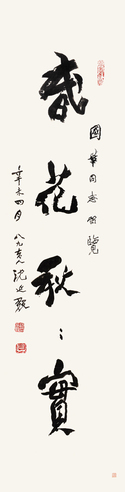 歲花秋實
國華同志留覽
辛未四月 八九老人沈延毅